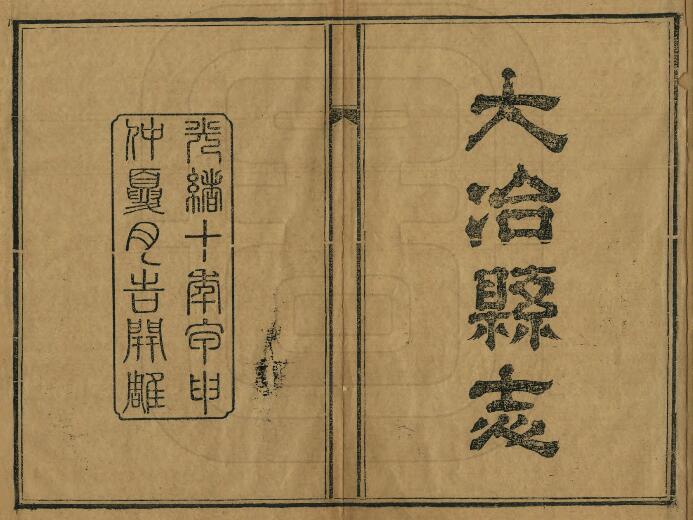 大冶縣志
光緒十年甲申
仲夏月吉開雕